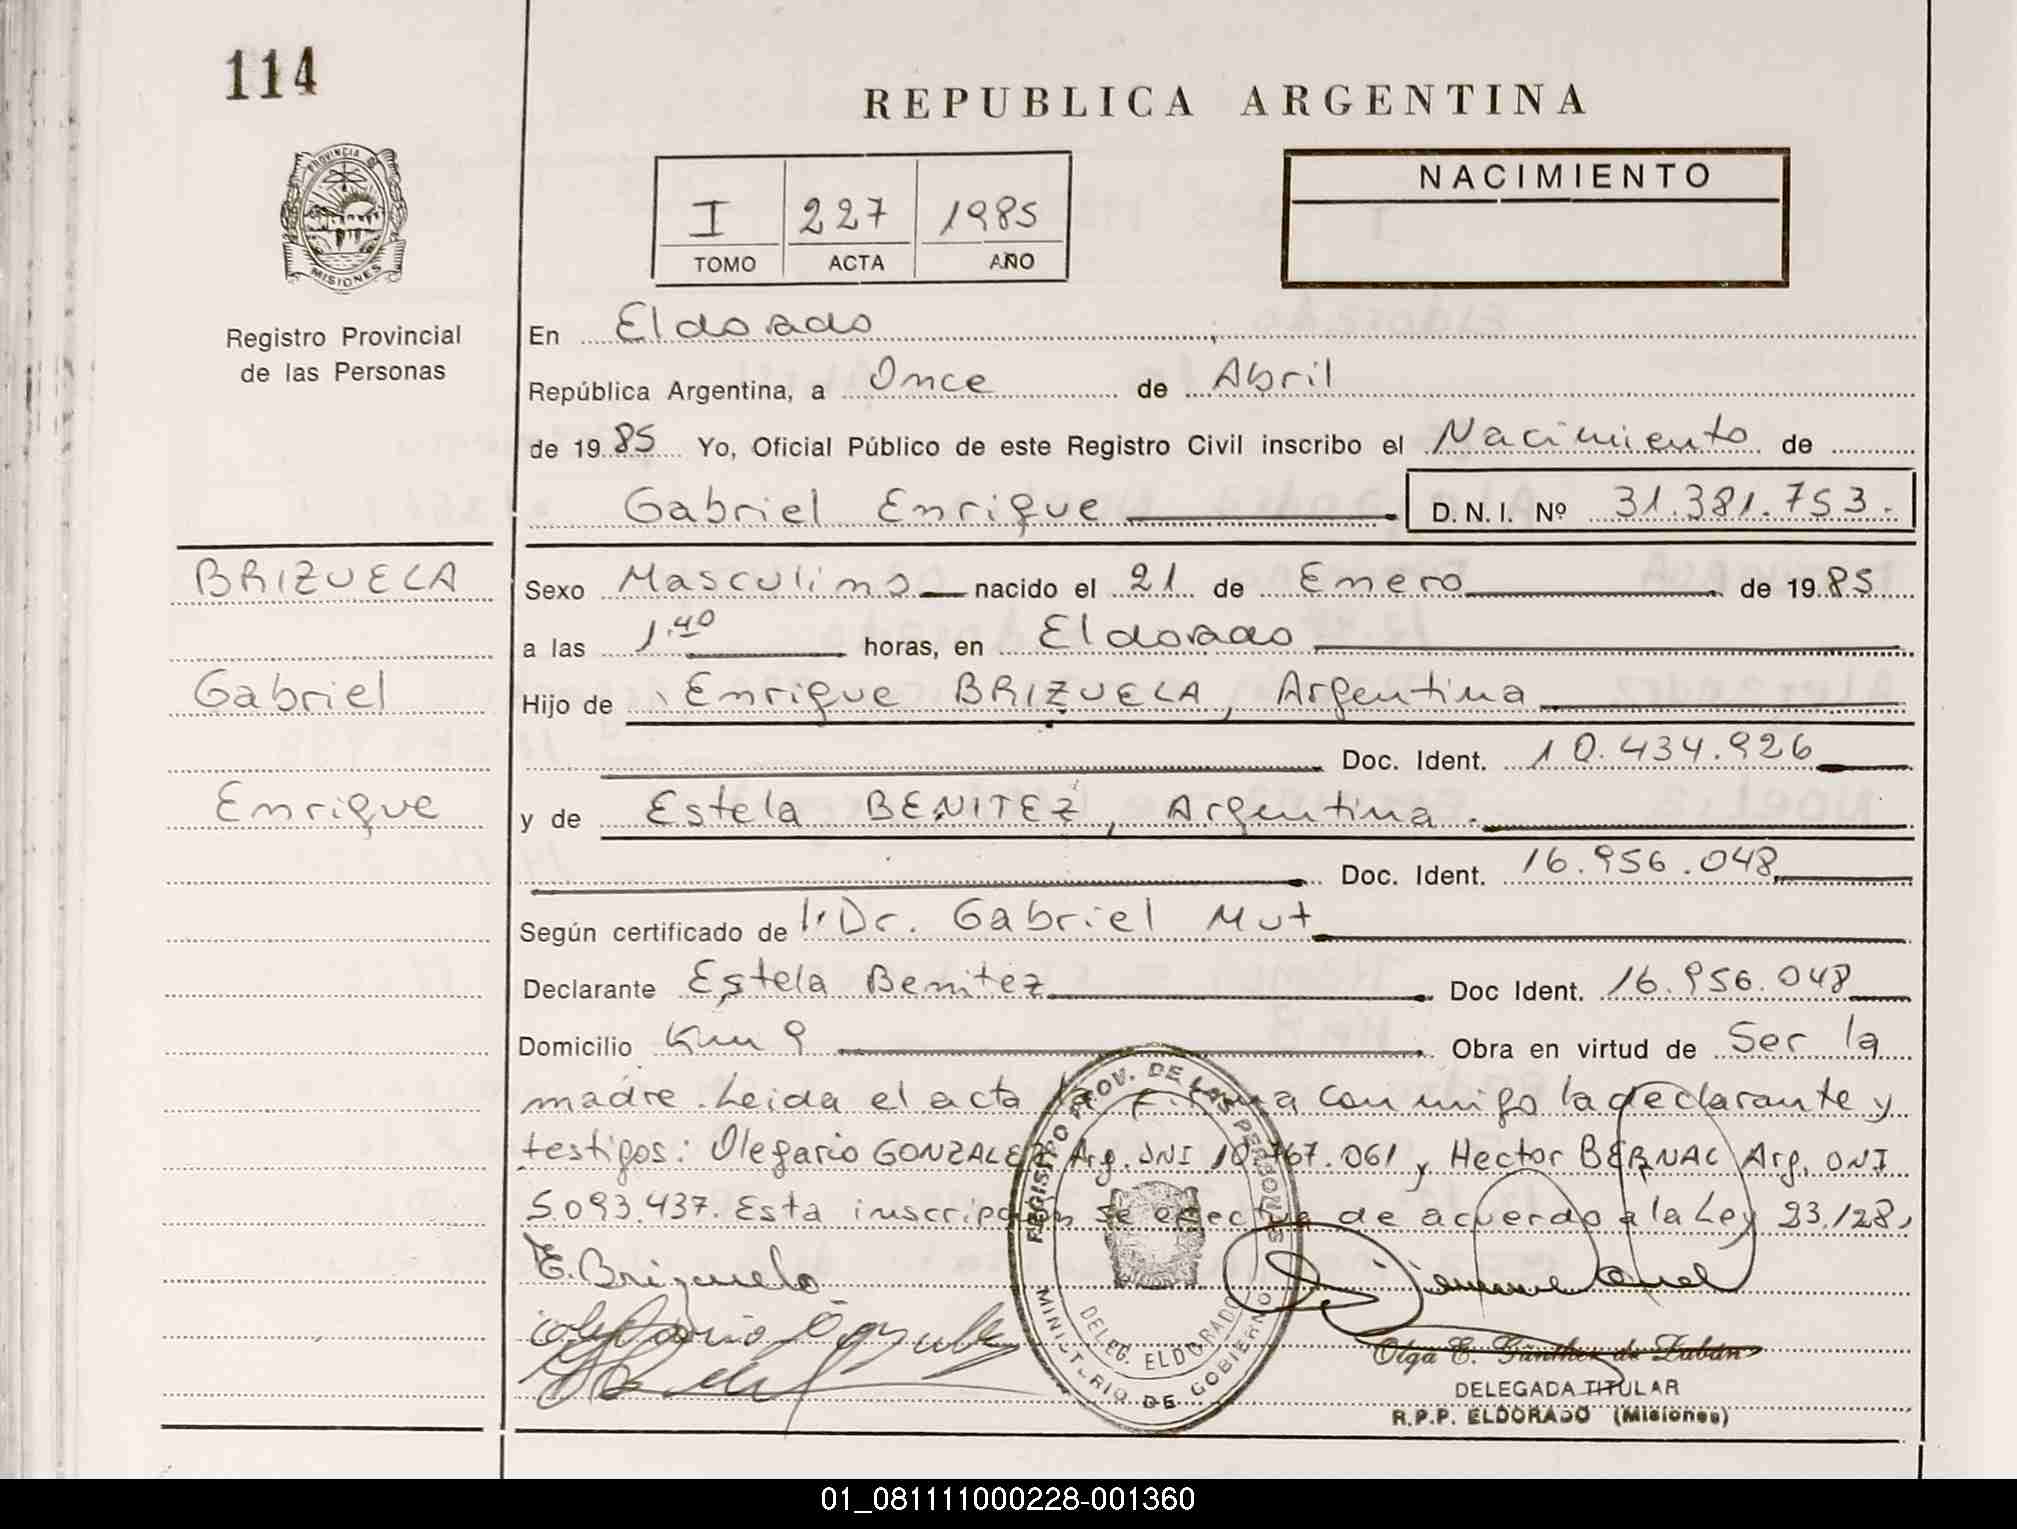 114
REPUBLICA ARGENTINA
PROVINCIA DE
MISIONES
NACIMIENTO
I 227 1985
TOMO ACTA AÑO
Registro Provincial
de las Personas
En Eldorado
República Argentina, a Once de Abril
de 1985 Yo, Oficial Público de este Registro Civil inscribo el Nacimiento de
Gabriel Enrique D.N.I. Nº 31.381.753.
BRIZUELA
Gabriel
Enrique
Sexo Masculino nacido el 21 de Enero de 1985
a las 1.40 horas, en Eldorado
Hijo de Enrique BRIZUELA, Argentina
Doc. Ident. 10.434.926
y de Estela BENITEZ, Argentina.
Doc. Ident. 16.956.048
Según certificado de Dr. Gabriel Mut
Declarante Estela Benitez Doc Ident. 16.956.048
Domicilio Km 9 Obra en virtud de Ser la
madre. Leida el acta la firma conmigo la declarante y
testigos: Olegario GONZALEZ Arg. DNI 10.767.061 y Hector BERNAL Arg. DNI
5.093.437. Esta inscripción se efectua de acuerdo a la Ley 23.128,
E. Brizuela
REGISTRO PROV. DE LAS PERSONAS
DELEG. ELDORADO
MINISTERIO DE GOBIERNO
Olga E. Günther de
DELEGADA TITULAR
R.P.P. ELDORADO (Misiones)
01_081111000228-001360